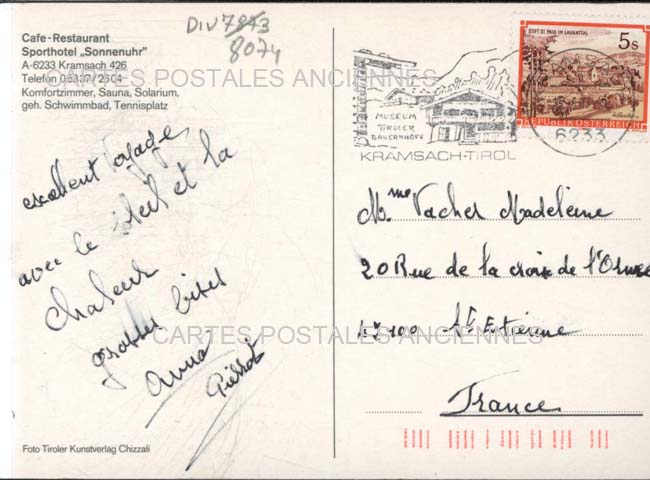 DIV 7873
8074
Cafe-Restaurant
Sporthotel „Sonnenuhr"
A-6233 Kramsach 426
Telefon 05337/2604
Komfortzimmer, Sauna, Solarium,
geh. Schwimmbad, Tennisplatz
CARTES POSTALES ANCIENNES
excellent voyage
avec le soleil et la
chaleur
grosses bises
Anna
Pierrot
CARTES POSTALES ANCIENNES
Foto Tiroler Kunstverlag Chizzali
MUSEUM
TIROLER
BAUERNHÖFE
KRAMSACH-TIROL
6233
STIFT ST. PAUL IM LAVANTTAL
5s
REPUBLIK ÖSTERREICH
Mme Vacher Madeleine
20 Rue de la croix de l'Orme
42100 St Etienne
France